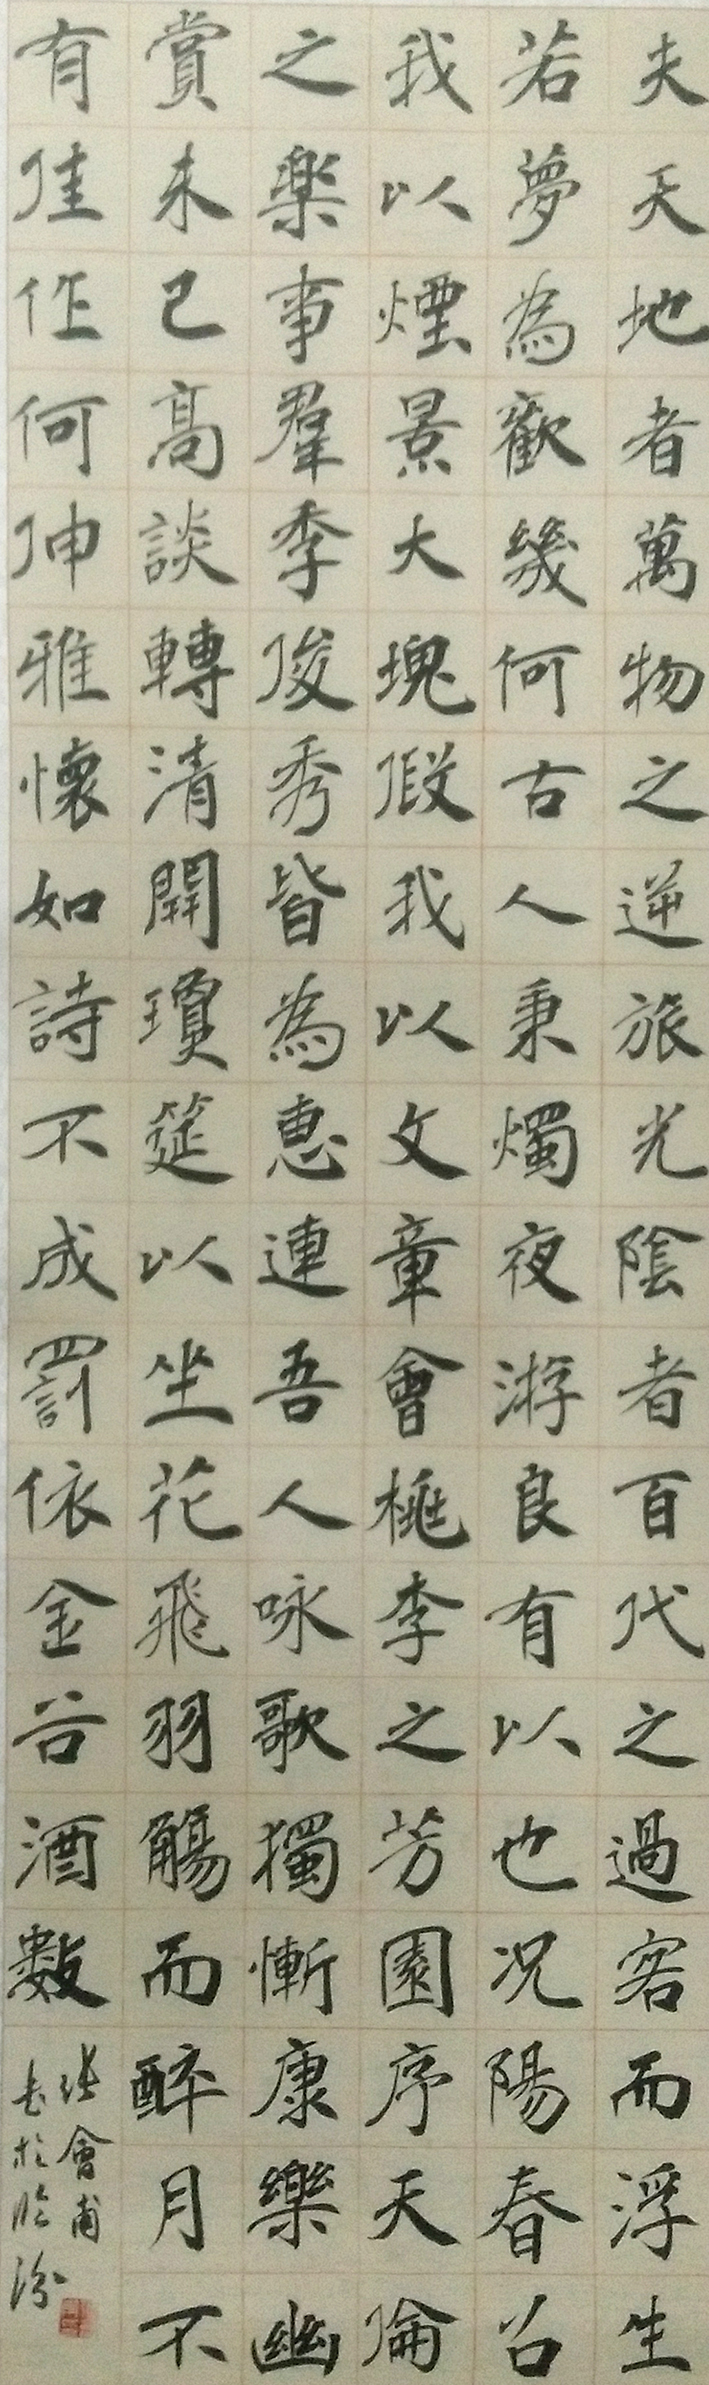 夫天地者萬物之逆旅光陰者百代之過客而浮生
若夢為歡幾何古人秉燭夜游良有以也况陽春召
我以煙景大塊假我以文章會桃李之芳園序天倫
之樂事羣季俊秀皆為惠連吾人咏歌獨慚康樂幽
賞未已高談轉清開瓊筵以坐花飛羽觴而醉月不
有佳作何伸雅懷如詩不成罰依金谷酒數
張會甫
書於臨汾